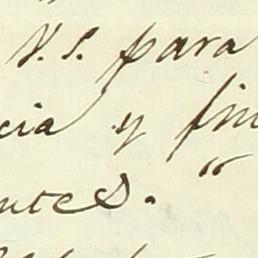 V.S. para
cia y fin
ntes. "